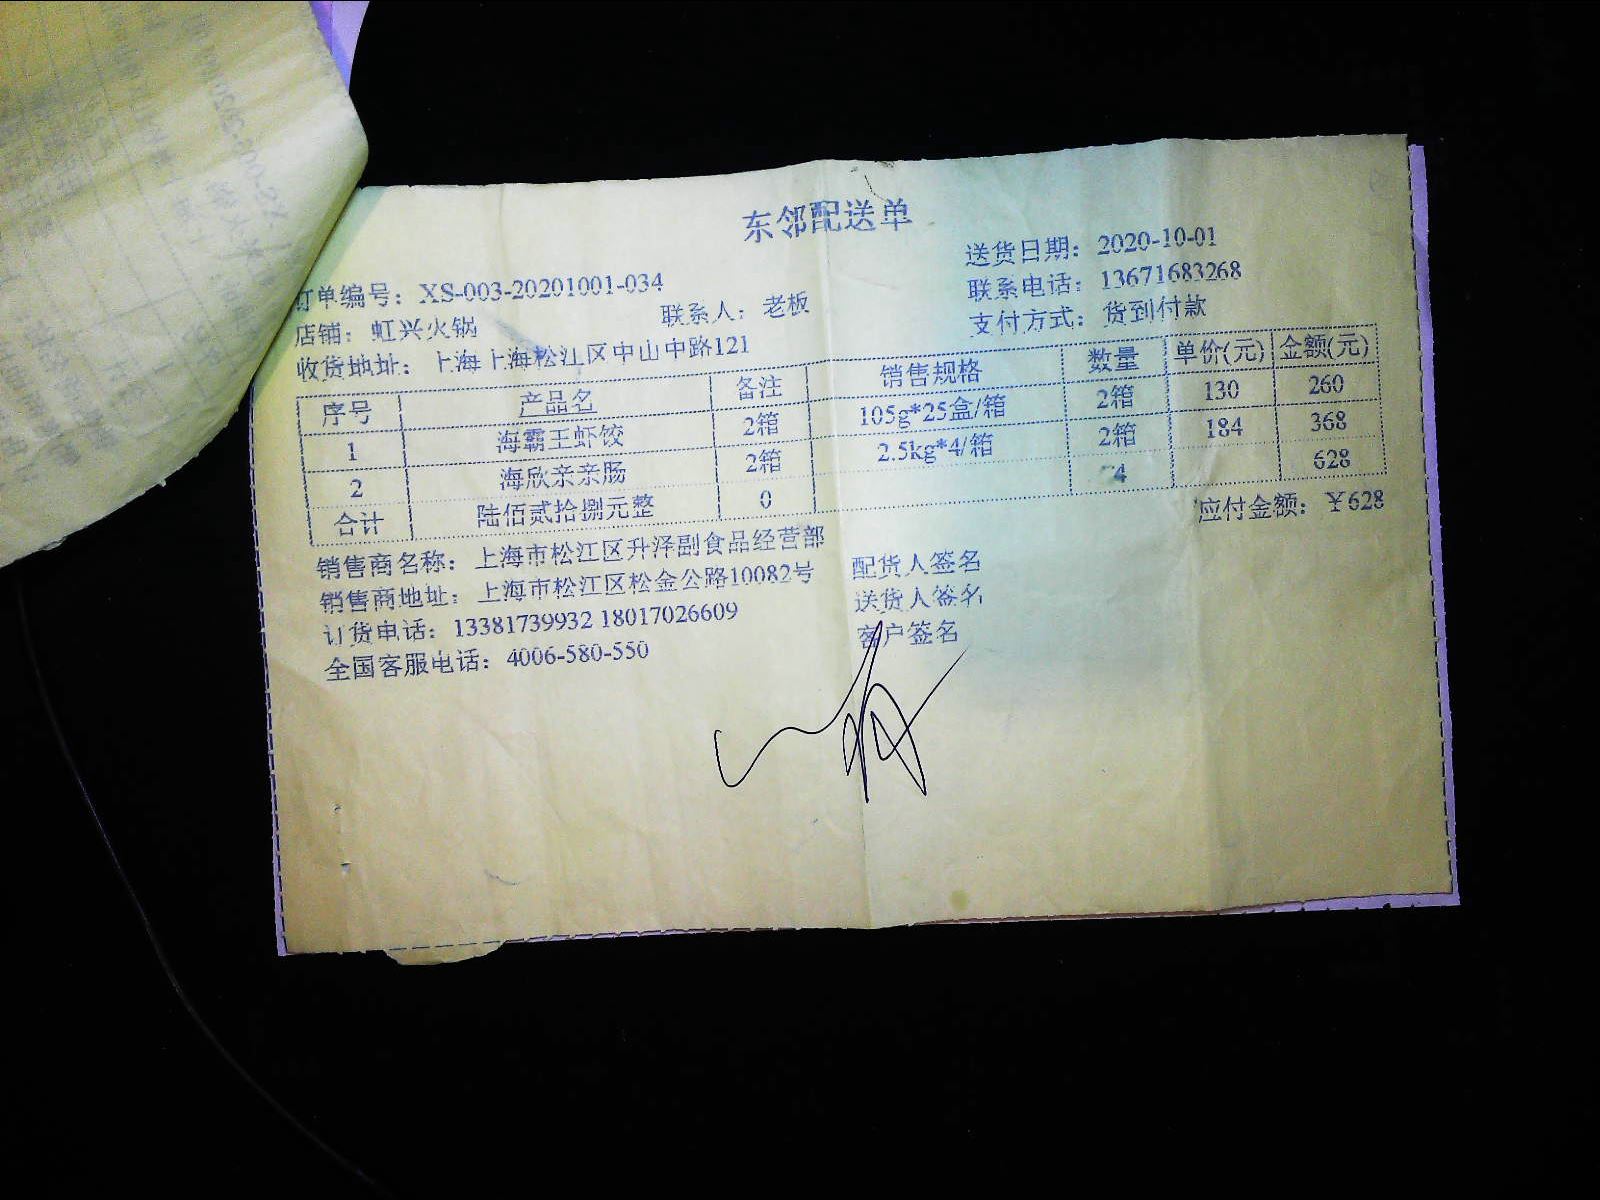 东邻配送单
送货日期：2020-10-01
订单编号：XS-003-20201001-034
联系电话：13671683268
店铺：虹兴火锅 联系人：老板 支付方式：货到付款
收货地址：上海上海松江区中山中路121
序号 产品名 备注 销售规格 数量 单价(元) 金额(元)
1 海霸王虾饺 2箱 105g*25盒/箱 2箱 130 260
2 海欣亲亲肠 2箱 2.5kg*4/箱 2箱 184 368
合计 陆佰贰拾捌元整 0 4 628
应付金额：￥628
销售商名称：上海市松江区升泽副食品经营部 配货人签名
销售商地址：上海市松江区松金公路10082号 送货人签名
订货电话：13381739932 18017026609 客户签名
全国客服电话：4006-580-550